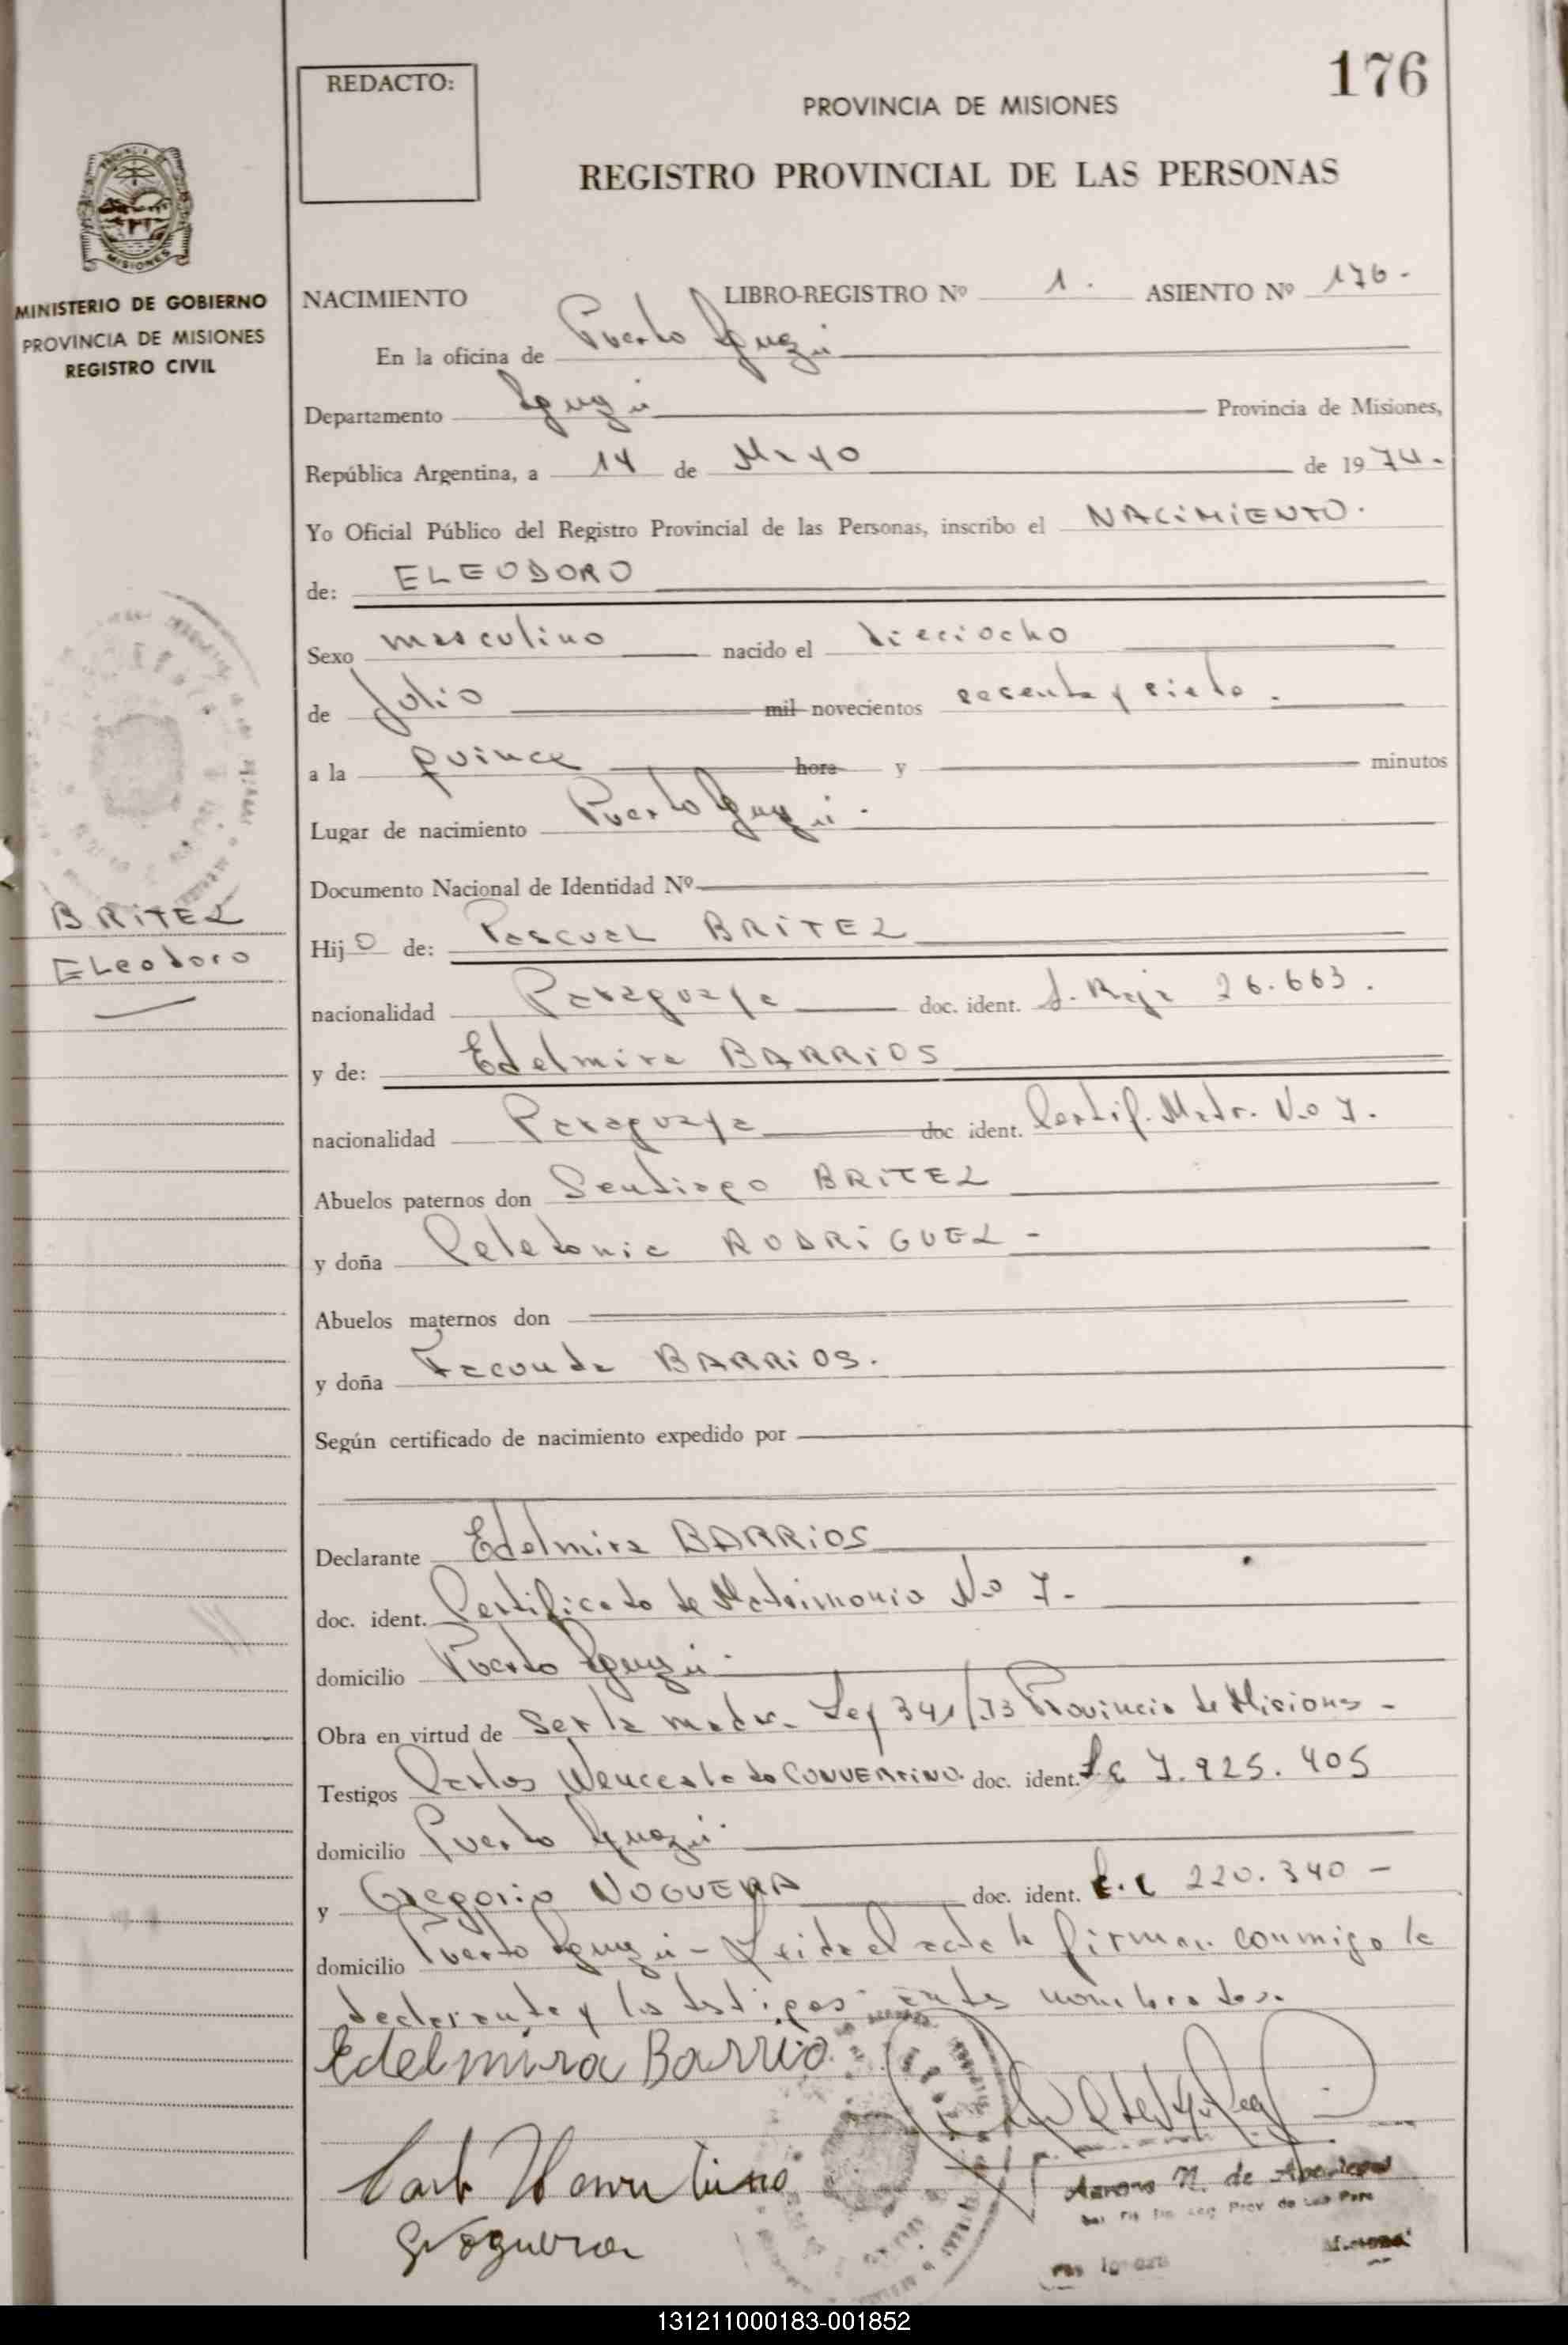 REDACTO:
176
PROVINCIA DE MISIONES
REGISTRO PROVINCIAL DE LAS PERSONAS
MISIONES
MINISTERIO DE GOBIERNO
PROVINCIA DE MISIONES
REGISTRO CIVIL
NACIMIENTO LIBRO-REGISTRO Nº 1. ASIENTO Nº 176-
En la oficina de Puerto Iguazú
Departamento Iguazú Provincia de Misiones,
República Argentina, a 14 de Mayo de 1974.
Yo Oficial Público del Registro Provincial de las Personas, inscribo el NACIMIENTO.
de: ELEODORO
Sexo masculino nacido el dieciocho
de Julio mil novecientos sesenta y siete.
a la quince hora y minutos
Lugar de nacimiento Puerto Iguazú.
Documento Nacional de Identidad Nº
BRITEZ
Eleodoro
Hijo de: Pascual BRITEZ
nacionalidad Paraguaya doc. ident. 26.663.
y de: Edelmira BARRIOS
nacionalidad Paraguaya doc ident. Certif. Matr. No 7.
Abuelos paternos don Santiago BRITEZ
y doña RODRIGUEZ -
Abuelos maternos don
y doña Facunda BARRIOS.
Según certificado de nacimiento expedido por
Declarante Edelmira BARRIOS
doc. ident. Certificado de Matrimonio No 7-
domicilio Puerto Iguazú.
Obra en virtud de Ser la madre. Ley 341/73 Provincia de Misiones -
Testigos Carlos Wenceslado CONVERTINO. doc. ident. 7.925.405
domicilio Puerto Iguazú.
y Gregorio NOGUERA doc. ident. 220.340-
domicilio Puerto Iguazú - Leida el acta la firman conmigo la
declarante y los testigos antes nombrados.
Edelmira Barrio
GNoguera
131211000183-001852